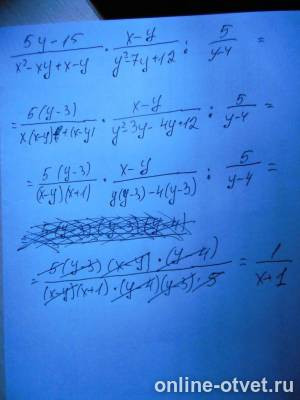 (5y-15)/(x²-xy+x-y) · (x-y)/(y²-7y+12) : 5/(y-4) =
= 5(y-3)/(x(x-y)+(x-y)) · (x-y)/(y²-3y-4y+12) : 5/(y-4) =
= 5(y-3)/((x-y)(x+1)) · (x-y)/(y(y-3)-4(y-3)) : 5/(y-4) =
= 5(y-3)(x-y)·(y-4)/((x-y)(x+1)·(y-4)(y-3)·5) = 1/(x+1)
online-otvet.ru